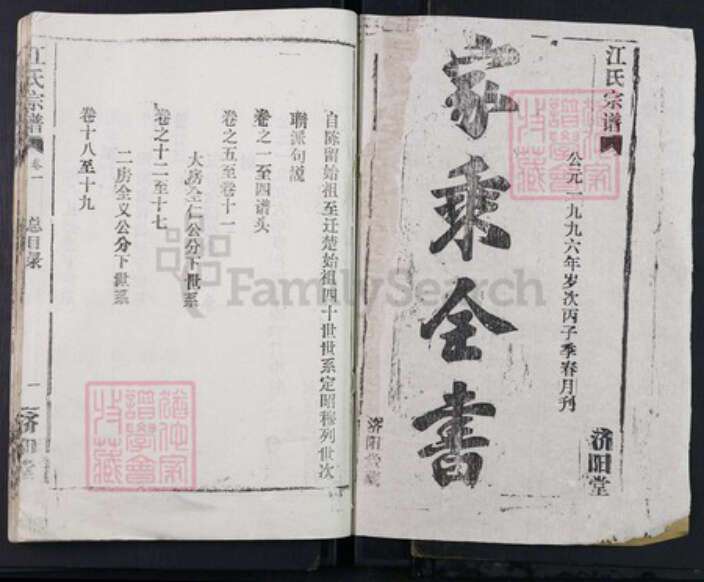 江氏宗谱
公元一九九六年岁次丙子季春月刊
济阳堂
家乘全书
济阳堂
自陈留始祖至迁楚始祖四十世世系定昭穆列世次
聨派句说
卷之一至四谱头
卷之五至卷十一
大房全仁公分下世系
卷之十二至十七
二房全义公分下世系
卷十八至十九
江氏宗谱
卷一
总目录
一
济阳堂
FamilySearch
譜學會
特藏
譜學會
特藏